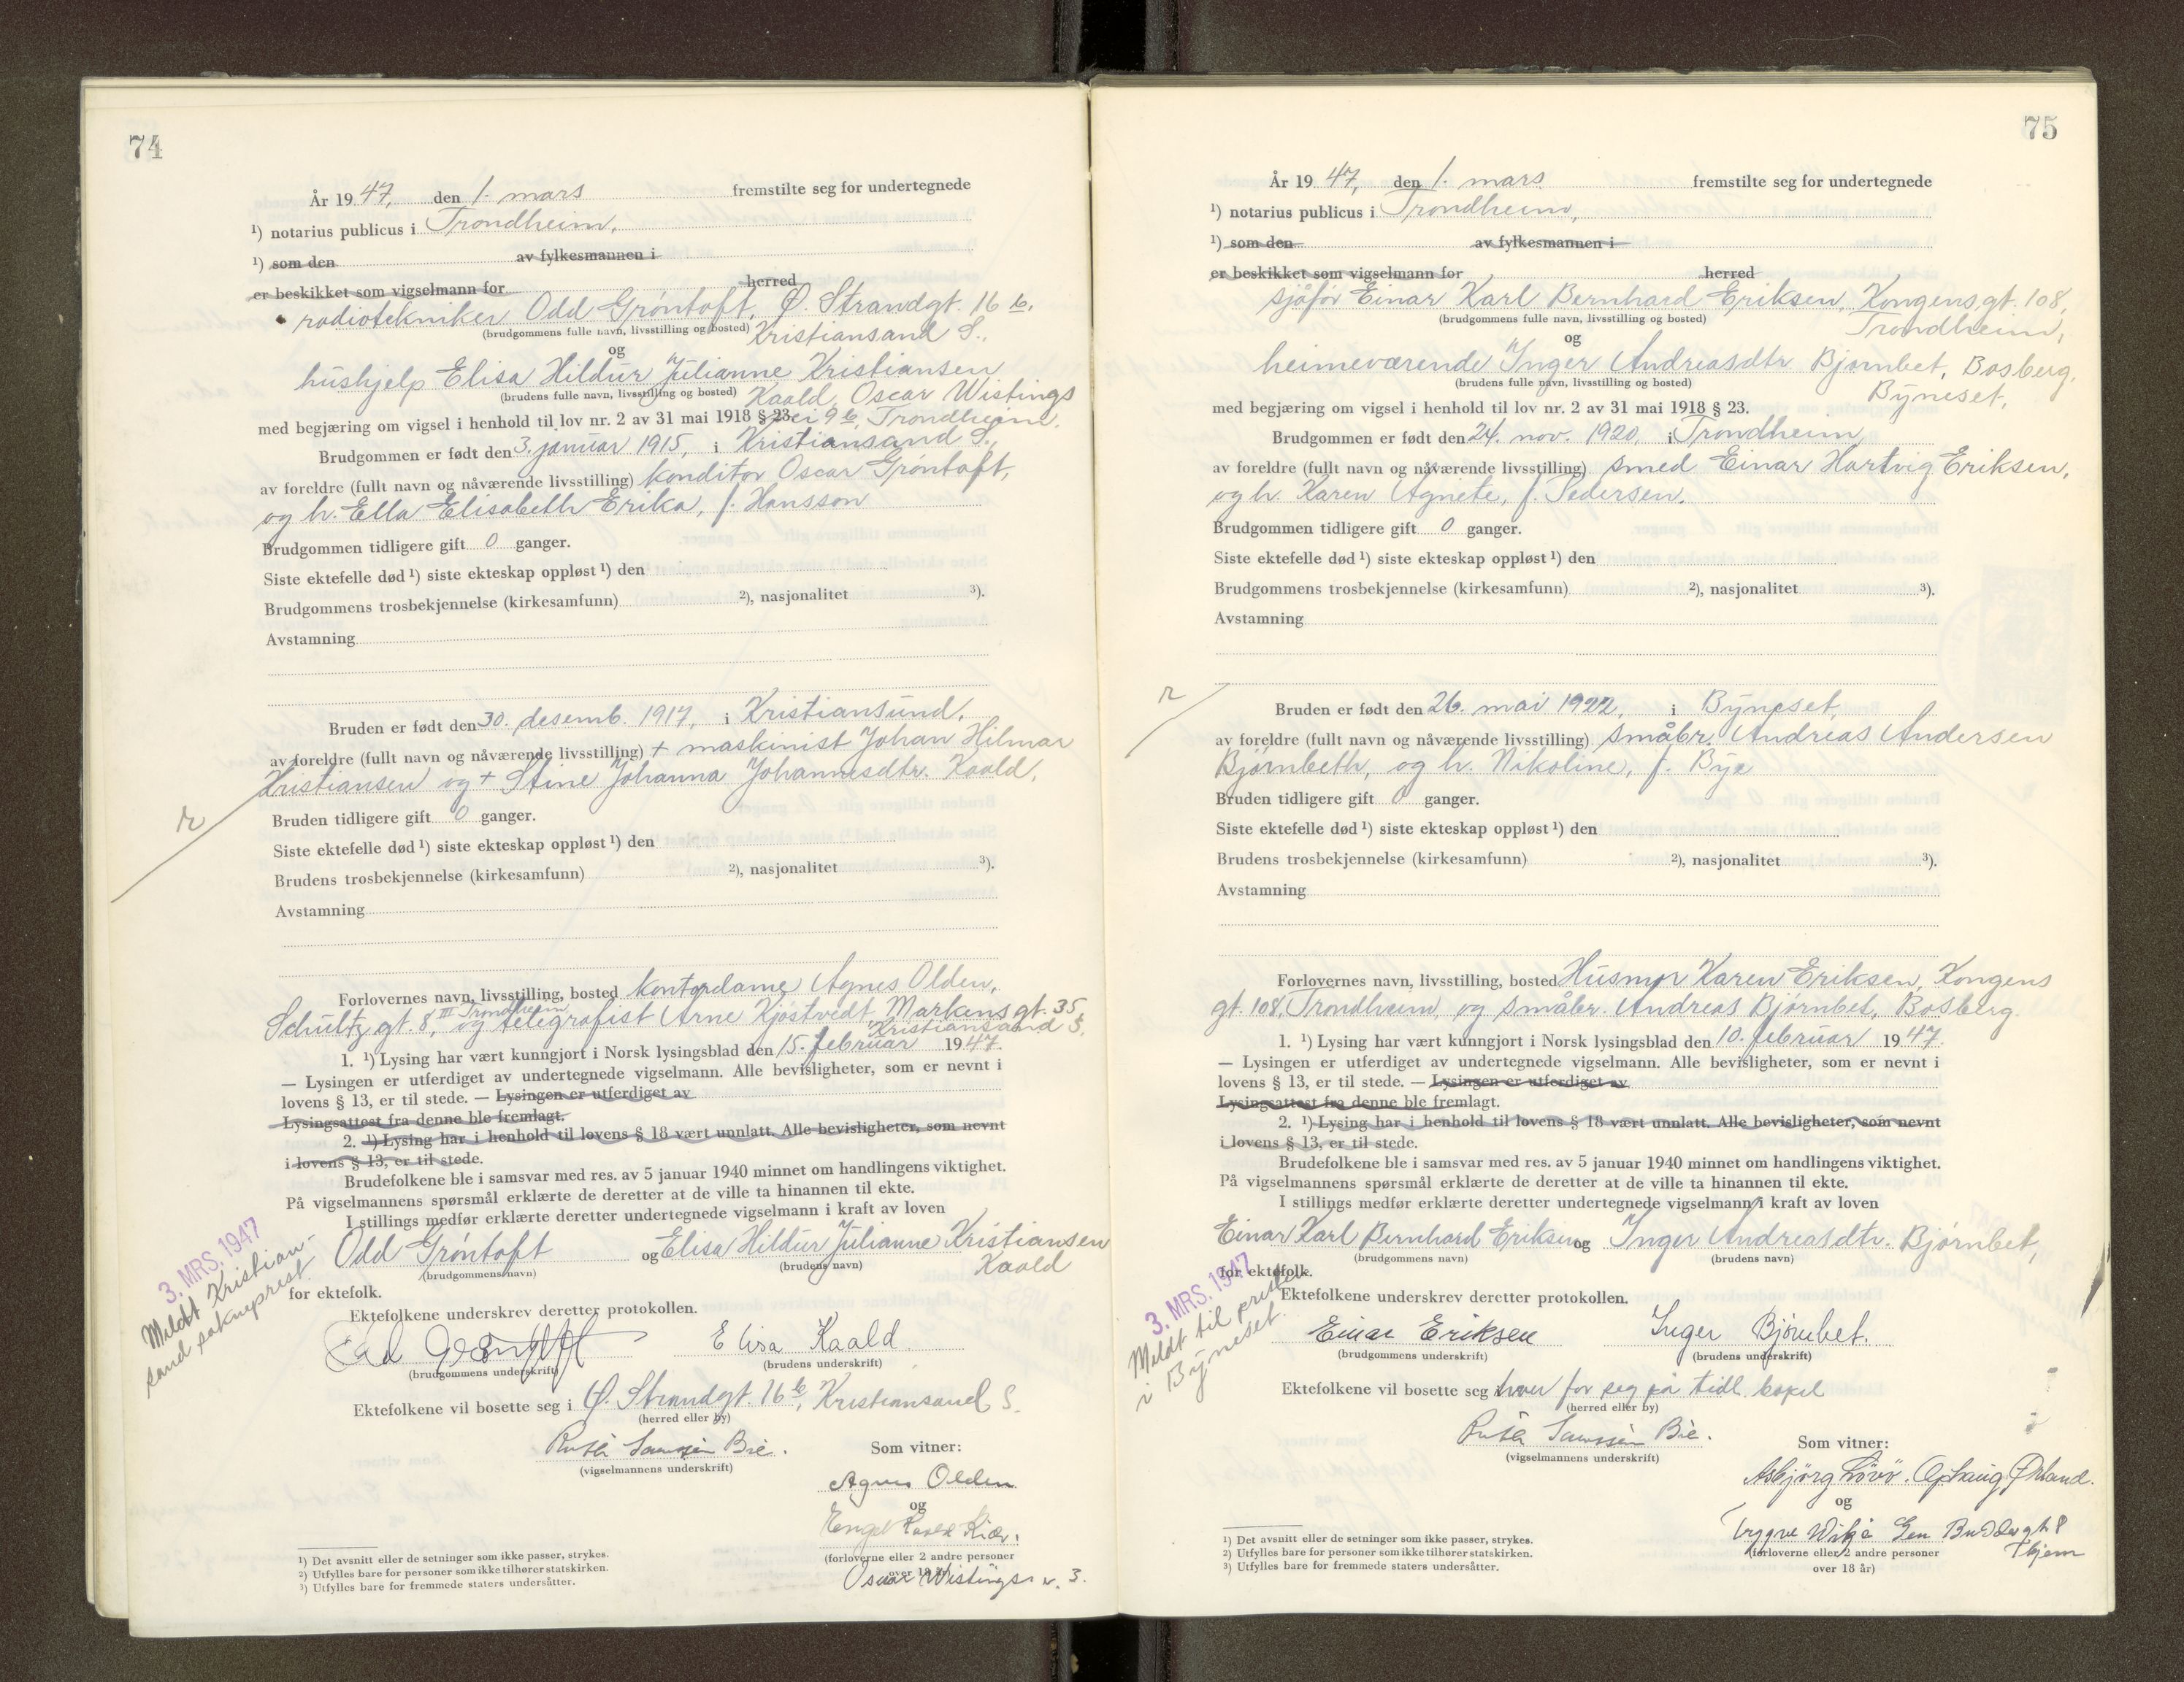 74
År 1947, den 1. mars fremstilte seg for undertegnede
¹) notarius publicus i Trondheim,
¹) som den av fylkesmannen i
er beskikket som vigselmann for herred
radiotekniker Odd Grøntoft, Ø. Strandgt. 16 b,
(brudgommens fulle navn, livsstilling og bosted) Kristiansand S.,
og
hushjelp Elisa Hildur Julianne Kristiansen
(brudens fulle navn, livsstilling og bosted) Kaald, Oscar Wistings
med begjæring om vigsel i henhold til lov nr. 2 av 31 mai 1918 § 23. vei 9 b, Trondheim.
Brudgommen er født den 3. januar 1915, i Kristiansand S.,
av foreldre (fullt navn og nåværende livsstilling) konditor Oscar Grøntoft,
og h. Ella Elisabeth Erika, f. Hansson
Brudgommen tidligere gift 0 ganger.
Siste ektefelle død ¹) siste ekteskap oppløst ¹) den
Brudgommens trosbekjennelse (kirkesamfunn) ²), nasjonalitet ³).
Avstamning
Bruden er født den 30. desemb. 1917, i Kristiansund,
av foreldre (fullt navn og nåværende livsstilling) + maskinist Johan Hilmar
Kristiansen og + Stine Johanna Johannesdtr. Kaald,
r
Bruden tidligere gift 0 ganger.
Siste ektefelle død ¹) siste ekteskap oppløst ¹) den
Brudens trosbekjennelse (kirkesamfunn) ²), nasjonalitet ³).
Avstamning
Forlovernes navn, livsstilling, bosted kontordame Agnes Olden,
Schultz gt. 8, III Trondheim, og telegrafist Arne Kjøstvedt, Markens gt. 35,
Kristiansand S.
1. ¹) Lysing har vært kunngjort i Norsk lysingsblad den 15. februar 1947.
— Lysingen er utferdiget av undertegnede vigselmann. Alle bevisligheter, som er nevnt i
lovens § 13, er til stede. — Lysingen er utferdiget av
Lysingsattest fra denne ble fremlagt.
2. ¹) Lysing har i henhold til lovens § 18 vært unnlatt. Alle bevisligheter, som nevnt
i lovens § 13, er til stede.
Brudefolkene ble i samsvar med res. av 5 januar 1940 minnet om handlingens viktighet.
På vigselmannens spørsmål erklærte de deretter at de ville ta hinannen til ekte.
I stillings medfør erklærte deretter undertegnede vigselmann i kraft av loven
Odd Grøntoft og Elisa Hildur Julianne Kristiansen
(brudgommens navn) (brudens navn) Kaald
for ektefolk.
3. MRS. 1947
Meldt Kristian-
sand sokneprest
Ektefolkene underskrev deretter protokollen.
Odd Grøntoft Elisa Kaald
(brudgommens underskrift) (brudens underskrift)
Ektefolkene vil bosette seg i Ø. Strandgt. 16 b, Kristiansand S.
(herred eller by)
Ruth Bie.
(vigselmannens underskrift)
Som vitner:
Agnes Olden
og
Kaald Kiær.
(forloverne eller 2 andre personer
over 18 år)
Oscar Wistingsv. 3.
¹) Det avsnitt eller de setninger som ikke passer, strykes.
²) Utfylles bare for personer som ikke tilhører statskirken.
³) Utfylles bare for fremmede staters undersåtter.
75
År 1947, den 1. mars fremstilte seg for undertegnede
¹) notarius publicus i Trondheim,
¹) som den av fylkesmannen i
er beskikket som vigselmann for herred
sjåfør Einar Karl Bernhard Eriksen, Kongens gt. 108,
(brudgommens fulle navn, livsstilling og bosted) Trondheim,
og
heimeværende Inger Andreasdtr Bjørnbet, Bosberg,
(brudens fulle navn, livsstilling og bosted) Byneset,
med begjæring om vigsel i henhold til lov nr. 2 av 31 mai 1918 § 23.
Brudgommen er født den 24. nov. 1920, i Trondheim
av foreldre (fullt navn og nåværende livsstilling) smed Einar Hartvig Eriksen,
og h. Karen Agnete, f. Pedersen.
Brudgommen tidligere gift 0 ganger.
Siste ektefelle død ¹) siste ekteskap oppløst ¹) den
Brudgommens trosbekjennelse (kirkesamfunn) ²), nasjonalitet ³).
Avstamning
r
Bruden er født den 26. mai 1922, i Byneset,
av foreldre (fullt navn og nåværende livsstilling) småbr. Andreas Andersen
Bjørnbeth, og h. Nikoline, f. Bye
Bruden tidligere gift 0 ganger.
Siste ektefelle død ¹) siste ekteskap oppløst ¹) den
Brudens trosbekjennelse (kirkesamfunn) ²), nasjonalitet ³).
Avstamning
Forlovernes navn, livsstilling, bosted Husmor Karen Eriksen, Kongens
gt. 108, Trondheim, og småbr. Andreas Bjørnbet, Bosberg.
1. ¹) Lysing har vært kunngjort i Norsk lysingsblad den 10. februar 1947.
— Lysingen er utferdiget av undertegnede vigselmann. Alle bevisligheter, som er nevnt i
lovens § 13, er til stede. — Lysingen er utferdiget av
Lysingsattest fra denne ble fremlagt.
2. ¹) Lysing har i henhold til lovens § 18 vært unnlatt. Alle bevisligheter, som nevnt
i lovens § 13, er til stede.
Brudefolkene ble i samsvar med res. av 5 januar 1940 minnet om handlingens viktighet.
På vigselmannens spørsmål erklærte de deretter at de ville ta hinannen til ekte.
I stillings medfør erklærte deretter undertegnede vigselmann i kraft av loven
Einar Karl Bernhard Eriksen og Inger Andreasdtr. Bjørnbet,
(brudgommens navn) (brudens navn)
for ektefolk.
3. MRS. 1947
Meldt til presten
i Byneset.
Ektefolkene underskrev deretter protokollen.
Einar Eriksen Inger Bjørnbet.
(brudgommens underskrift) (brudens underskrift)
Ektefolkene vil bosette seg hver for seg på tidl. bopel
(herred eller by)
Ruth Bie.
(vigselmannens underskrift)
Som vitner:
Asbjørg Løvø. Ophaug Ørland.
og
Trygve Gen Buddes gt 8
Thjem
(forloverne eller 2 andre personer
over 18 år)
¹) Det avsnitt eller de setninger som ikke passer, strykes.
²) Utfylles bare for personer som ikke tilhører statskirken.
³) Utfylles bare for fremmede staters undersåtter.